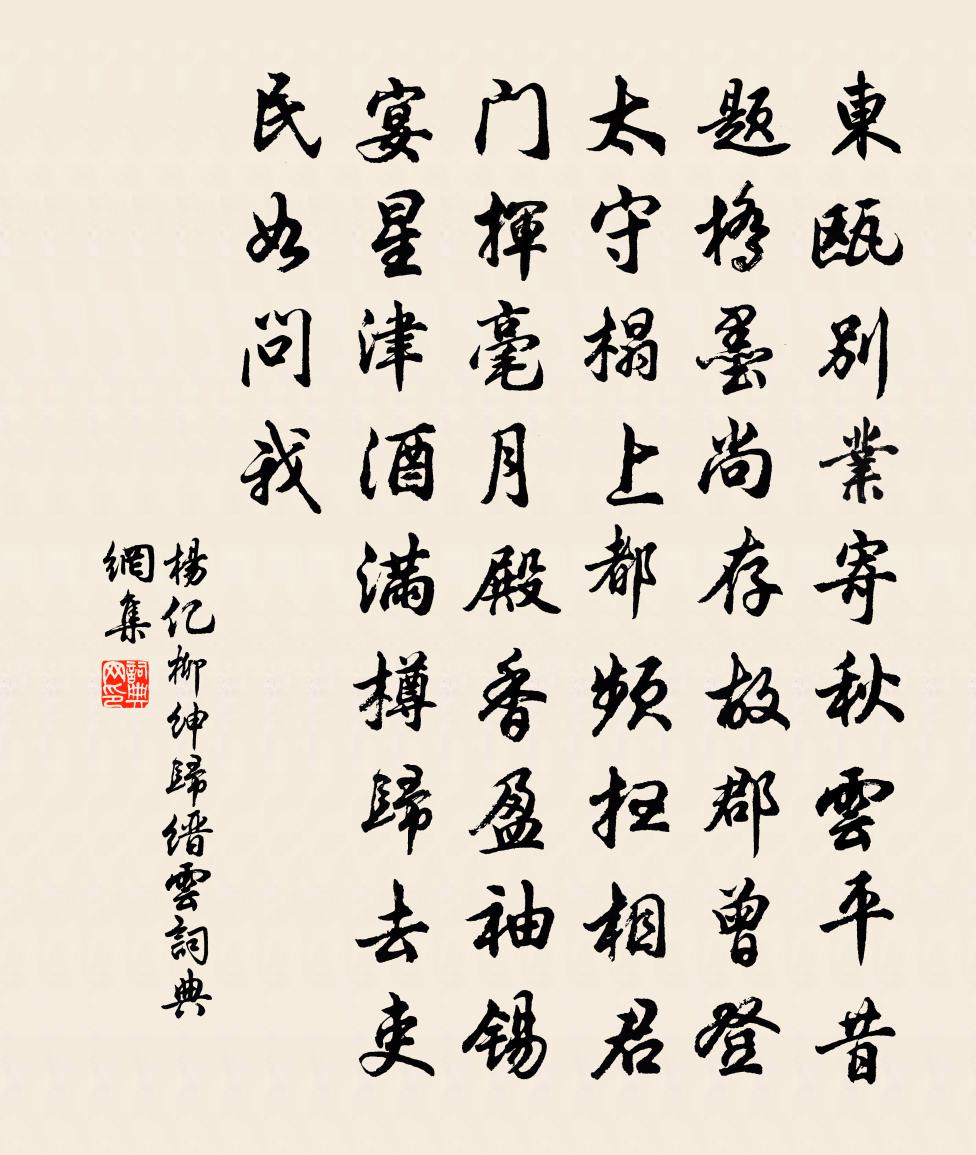 東瓯别業寄秋雲平昔
题橋墨尚存故郡曾登
太守榻上都频抂相君
门揮毫月殿香盈袖锡
宴星津酒满樽歸去吏
民如問我
楊亿柳绅歸缙雲詞典
網集
詞典网印